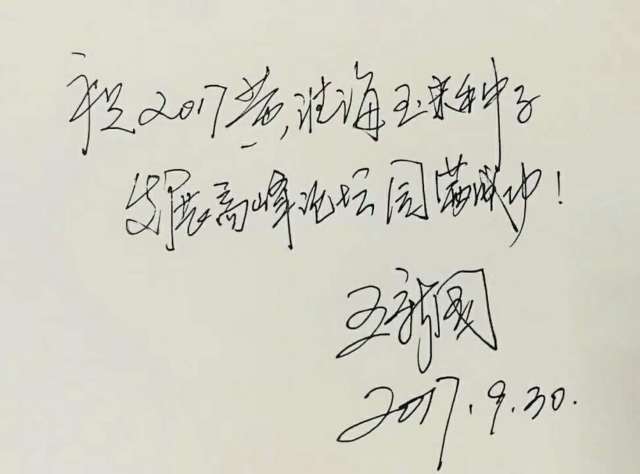 祝2017黄淮海玉米种子
发展高峰论坛圆满成功!
王新国
2017.9.30.